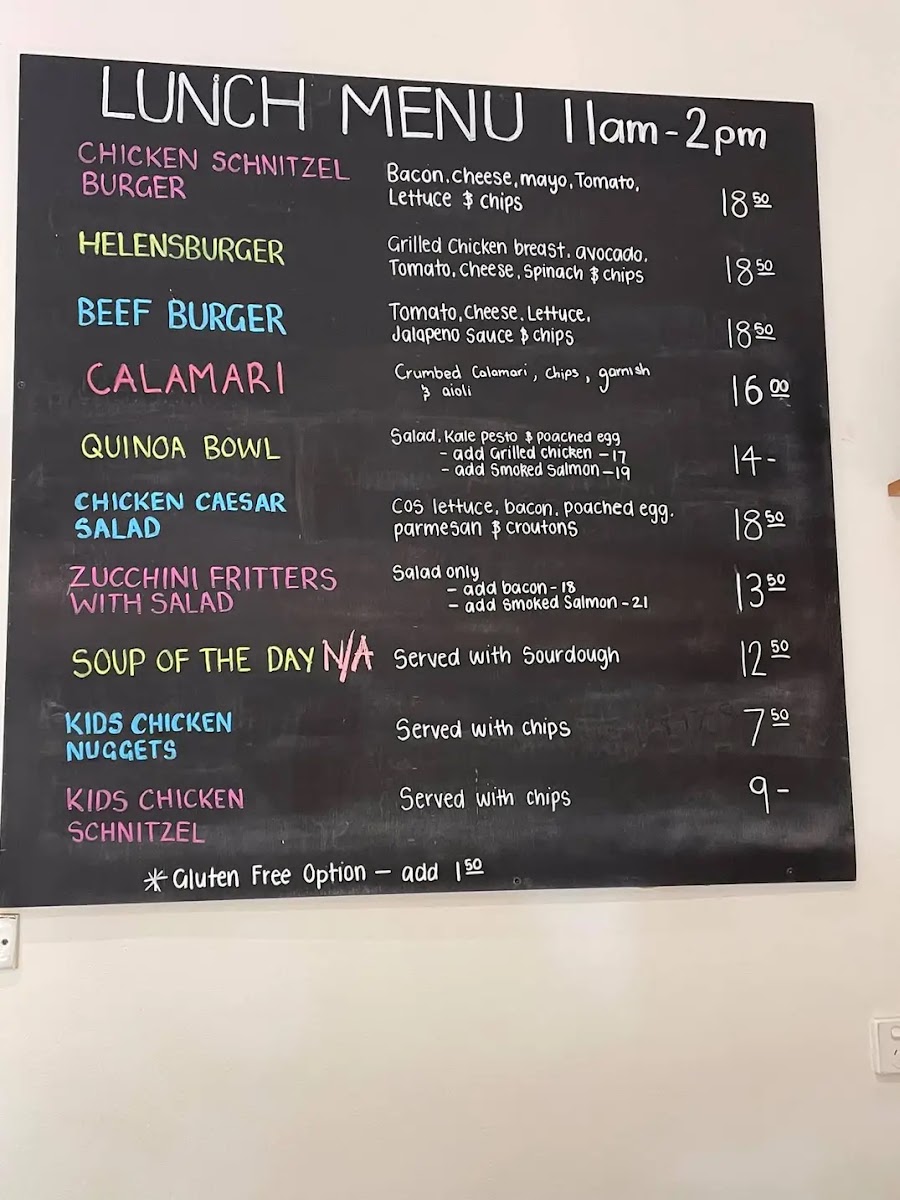 LUNCH MENU 11am - 2pm
CHICKEN SCHNITZEL
BURGER
Bacon, cheese, mayo, Tomato,
Lettuce & chips
18 50
HELENSBURGER
Grilled Chicken breast, avocado,
Tomato, Cheese, Spinach & chips
18 50
BEEF BURGER
Tomato, Cheese, Lettuce,
Jalapeno Sauce & chips
18 50
CALAMARI
Crumbed Calamari, chips, garnish
& aioli
16 00
QUINOA BOWL
Salad, Kale Pesto & poached egg
- add Grilled Chicken - 17
- add Smoked Salmon - 19
14 -
CHICKEN CAESAR
SALAD
COS lettuce, bacon, poached egg,
parmesan & croutons
18 50
ZUCCHINI FRITTERS
WITH SALAD
Salad only
- add bacon - 18
- add Smoked Salmon - 21
13 50
SOUP OF THE DAY N/A
Served with Sourdough
12 50
KIDS CHICKEN
NUGGETS
Served with chips
7 50
KIDS CHICKEN
SCHNITZEL
Served with chips
9 -
* Gluten Free Option - add 1 50